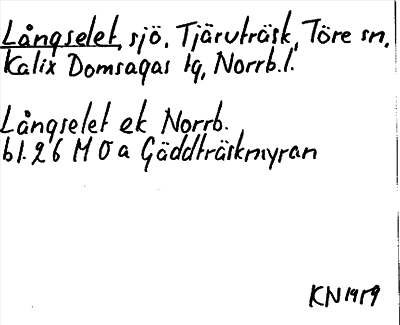 Långselet, sjö, Tjäruträsk, Töre sn,
Kalix Domsagas tg, Norrb.l.
Långselet ek Norrb.
bl. 26 M 0 a Gäddträskmyran
KN 1959